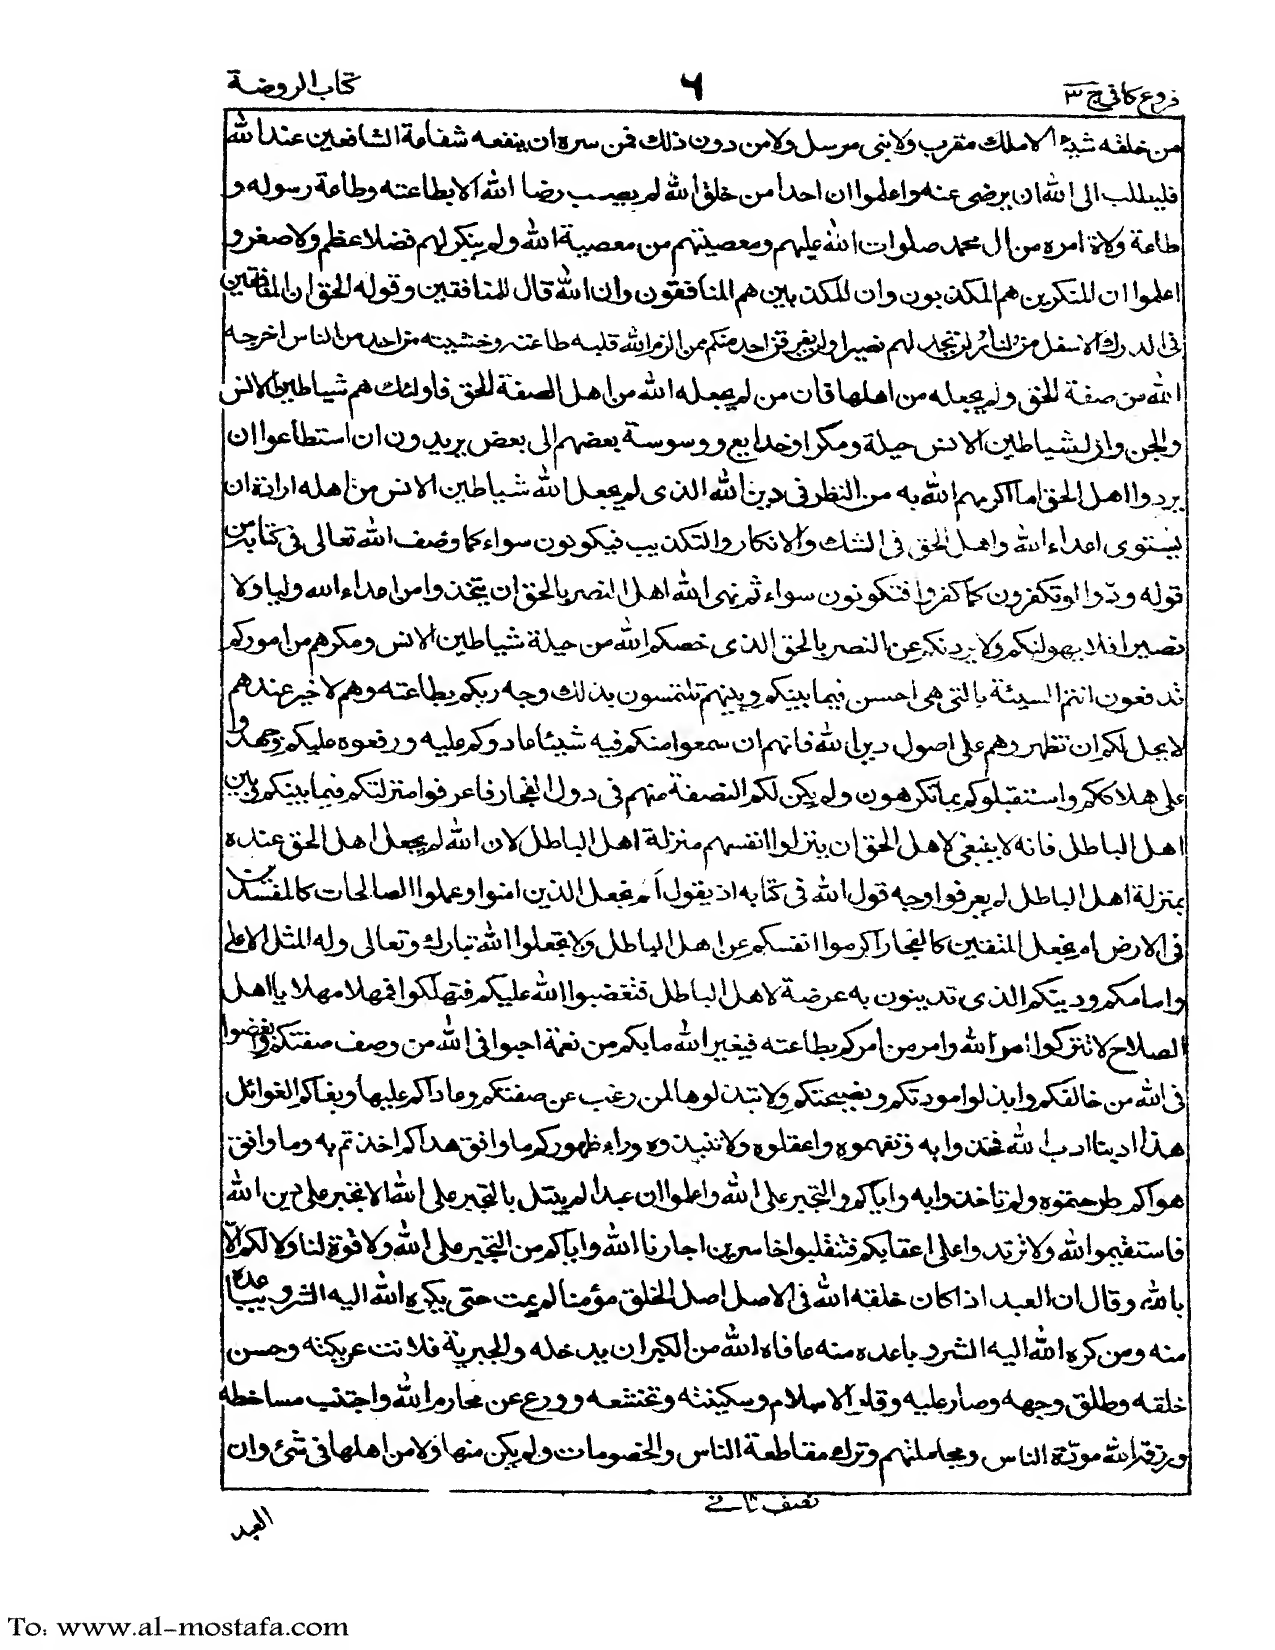 فروع كافي ج ٣
٦
كتاب الروضة
من خلقه شيئا لا ملك مقرب ولا نبى مرسل ولا من دون ذلك فمن سره ان ينفعه شفاعة الشافعين عند الله
فليطلب الى الله ان يرضى عنه واعلموا ان احدا من خلق الله لم يصيب رضا الله الا بطاعته وطاعة رسوله و
طاعة ولاة امره من ال محمد صلوات الله عليهم ومعصيتهم من معصية الله ولم ينكر لهم فضلا عظم ولا صغر و
اعلموا ان المنكرين هم المكذبون وان المكذبين هم المنافقون وان الله قال للمنافقين وقوله الحق ان المنافقين
فى الدرك الاسفل من النار ولن تجد لهم نصيرا ولا يفرقن احد منكم ممن الزم الله قلبه طاعته وخشيته من احد من الناس اخرجه
الله من صفة الحق ولم يجعله من اهلها فان من لم يجعله الله من اهل الصفة للحق فاولئك هم شياطين الانس
والجن وان لشياطين الانس حيلة ومكرا وخدايع ووسوسة بعضهم الى بعض يريدون ان استطاعوا ان
يردوا اهل الحق عما اكرمهم الله به من النظر فى دين الله الذى لم يجعل الله شياطين الانس من اهله ارادة ان
يستوى اعداء الله واهل الحق فى الشك والانكار والتكذيب فيكونون سواء كما وصف الله تعالى فى كتابه من
قوله ودوا لو تكفرون كما كفروا فتكونون سواء ثم نهى الله اهل النصر بالحق ان يتخذوا من اعداء الله وليا ولا
نصيرا فلا يهولنكم ولا يردنكم عن النصر بالحق الذى خصكم الله من حيلة شياطين الانس ومكرهم من اموركم
تدفعون انتم السيئة بالتى هى احسن فيما بينكم وبينهم تلتمسون بذلك وجه ربكم بطاعته وهم لا خير عندهم
لا يحل لكم ان تظهروهم على اصول دين الله فانهم ان سمعوا منكم فيه شيئا عادوكم عليه ورفعوه عليكم وجهدوا
على هلاككم واستقبلوكم بما تكرهون ولم يكن لكم النصفة منهم فى دول الفجار فاعرفوا منزلتكم فيما بينكم وبين
اهل الباطل فانه لا ينبغى لاهل الحق ان ينزلوا انفسهم منزلة اهل الباطل لان الله لم يجعل اهل الحق عنده
بمنزلة اهل الباطل لم يعرفوا وجه قول الله فى كتابه اذ يقول أم نجعل الذين امنوا وعملوا الصالحات كالمفسدين
فى الارض ام نجعل المتقين كالفجار اكرموا انفسكم عن اهل الباطل ولا تجعلوا الله تبارك وتعالى وله المثل الاعلى
وامامكم ودينكم الذى تدينون به عرضة لاهل الباطل فتغضبوا الله عليكم فتهلكوا فمهلا مهلا يا اهل
الصلاح لا تتركوا امر الله وامر من امركم بطاعته فيغير الله ما بكم من نعمة احبوا فى الله من وصف صفتكم وابغضوا
فى الله من خالفكم وابذلوا مودتكم ونصيحتكم ولا تبتذلوها لمن رغب عن صفتكم وعاداكم عليها وبغاكم الغوائل
هذا ادبنا ادب الله فخذوا به وتفهموه واعقلوه ولا تنبذوه وراء ظهوركم ما وافق هداكم اخذتم به وما وافق
هواكم طرحتموه ولم تاخذوا به واياكم والتجبر على الله واعلموا ان عبدا لم يبتل بالتجبر على الله الا تجبر على دين الله
فاستقيموا لله ولا ترتدوا على اعقابكم فتنقلبوا خاسرين اجارنا الله واياكم من التجبر على الله ولا قوة لنا ولا لكم الا
بالله وقال ان العبد اذا كان خلقه الله فى الاصل اصل الخلق مؤمنا لم يمت حتى يكره الله اليه الشر ويباعده
منه ومن كره الله اليه الشر وباعده منه عافاه الله من الكبر ان يدخله والجبرية فلانت عريكته وحسن
خلقه وطلق وجهه وصار عليه وقار الاسلام وسكينته وتخشعه وورع عن محارم الله واجتنب مساخطه
ورزقه الله مودة الناس ومجاملتهم وترك مقاطعة الناس والخصومات ولم يكن منها ولا من اهلها فى شئ وان
نصف ثاني
العبد
To: www.al-mostafa.com